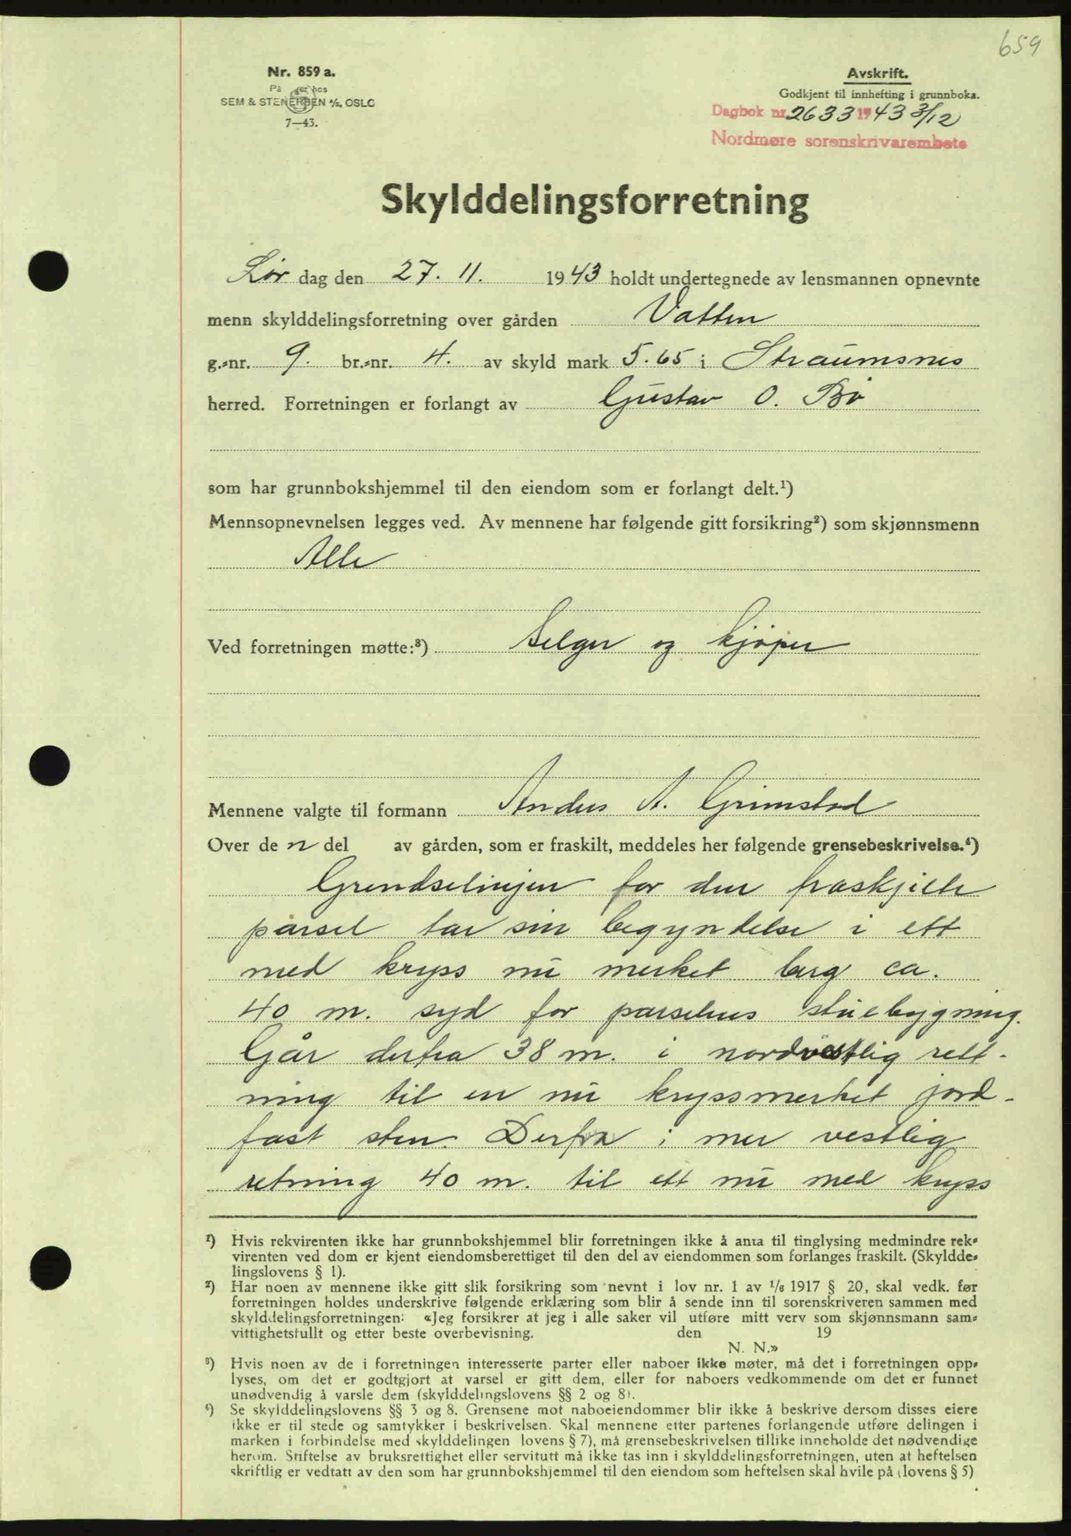 659
Nr. 859 a.
På lager hos
SEM & STENERSEN A/S, OSLO
7—43.
Avskrift.
Godkjent til innhefting i grunnboka.
Dagbok nr. 2633 1943 3/12
Nordmøre sorenskrivarembete
Skylddelingsforretning
Lør dag den 27. 11. 1943 holdt undertegnede av lensmannen opnevnte
menn skylddelingsforretning over gården Vatten
g.-nr. 9. br.-nr. 4. av skyld mark 5.65 i Straumsnes
herred. Forretningen er forlangt av Gustav O. Bø
som har grunnbokshjemmel til den eiendom som er forlangt delt.¹)
Mennsopnevnelsen legges ved. Av mennene har følgende gitt forsikring²) som skjønnsmenn
Alle
Ved forretningen møtte:³) Selger og kjøper
Mennene valgte til formann Anders A. Grimstad
Over de n del av gården, som er fraskilt, meddeles her følgende grensebeskrivelse.⁴)
Grendselinjen for den fraskjelte
parsel tar sin begyndelse i ett
med kryss nu merket berg ca.
40 m. syd for parselens stuebygning.
Går derfra 38 m. i nordvestlig rett-
ning til en nu kryssmerket jord-
fast sten. Derfra i mer vestlig
retning 40 m. til ett nu med kryss
¹) Hvis rekvirenten ikke har grunnbokshjemmel blir forretningen ikke å anta til tinglysing medmindre rek-
virenten ved dom er kjent eiendomsberettiget til den del av eiendommen som forlanges fraskilt. (Skyldde-
lingslovens § 1).
²) Har noen av mennene ikke gitt slik forsikring som nevnt i lov nr. 1 av 1/6 1917 § 20, skal vedk. før
forretningen holdes underskrive følgende erklæring som blir å sende inn til sorenskriveren sammen med
skylddelingsforretningen: «Jeg forsikrer at jeg i alle saker vil utføre mitt verv som skjønnsmann sam-
vittighetsfullt og etter beste overbevisning. den 19
N. N.»
³) Hvis noen av de i forretningen interesserte parter eller naboer ikke møter, må det i forretningen opp-
lyses, om det er godtgjort at varsel er gitt dem, eller for naboers vedkommende om det er funnet
unødvendig å varsle dem (skylddelingslovens §§ 2 og 8).
⁴) Se skylddelingslovens §§ 3 og 8. Grensene mot naboeiendommer blir ikke å beskrive dersom disses eiere
ikke er til stede og samtykker i beskrivelsen. Skal mennene etter partenes forlangende utføre delingen i
marken i forbindelse med skylddelingen (lovens § 7), må grensebeskrivelsen tillike inneholde det nødvendige
herom. Stiftelse av bruksrettighet eller servitutt må ikke tas inn i skylddelingsforretningen, uten at heftelsen
skriftlig er vedtatt av den som har grunnbokshjemmel til den eiendom som heftelsen skal hvile på (lovens § 5)